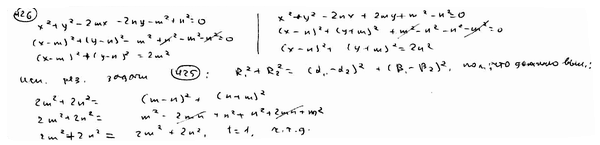 426
x²+y²-2mx-2ny-m²+n²=0
(x-m)²+(y-n)²-m²+n²-m²-n²=0
(x-m)²+(y-n)²=2m²
x²+y²-2nx+2my+m²-n²=0
(x-n)²+(y+m)²+m²-n²-n²-m²=0
(x-n)²+(y+m)²=2n²
исп. рез. задачи 425: R₁²+R₂²=(α₁-α₂)²+(β₁-β₂)², пол., что должно вып.:
2m²+2n²= (m-n)²+(n+m)²
2m²+2n²= m²-2mn+n²+n²+2mn+m²
2m²+2n²= 2m²+2n², 1=1, ч.т.д.